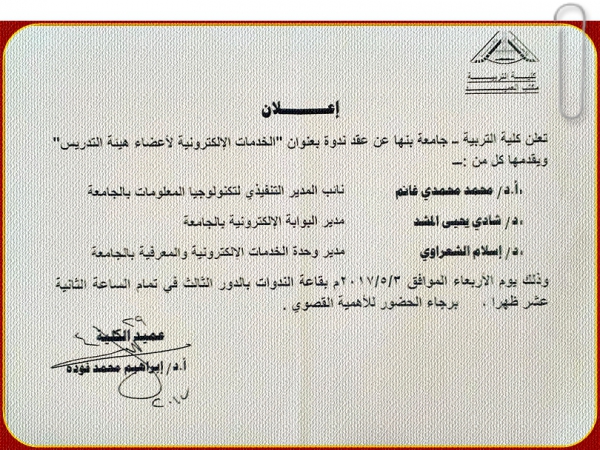 كلية التربية
مكتب العميد
إعلان
تعلن كلية التربية – جامعة بنها عن عقد ندوة بعنوان "الخدمات الإلكترونية لأعضاء هيئة التدريس"
ويقدمها كل من :–
أ.د/ محمد محمدي غانم نائب المدير التنفيذي لتكنولوجيا المعلومات بالجامعة
د/ شادي يحيى المشد مدير البوابة الإلكترونية بالجامعة
د/ إسلام الشعراوي مدير وحدة الخدمات الالكترونية والمعرفية بالجامعة
وذلك يوم الأربعاء الموافق ٢٠١٧/٥/٣م بقاعة الندوات بالدور الثالث في تمام الساعة الثانية
عشر ظهرا . برجاء الحضور للأهمية القصوي .
عميد الكلية
أ.د/ إبراهيم محمد فوده
٢٠١٧